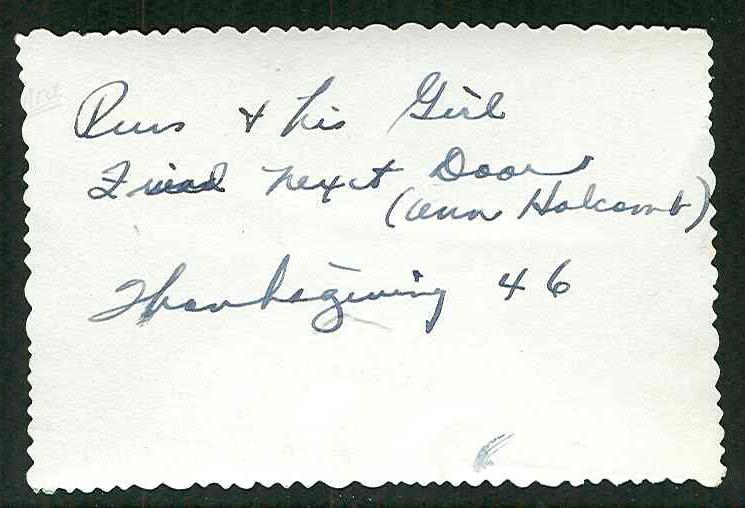 & his Girl
Friend next Door
(Ann Holcomb)
Thanksgiving 46